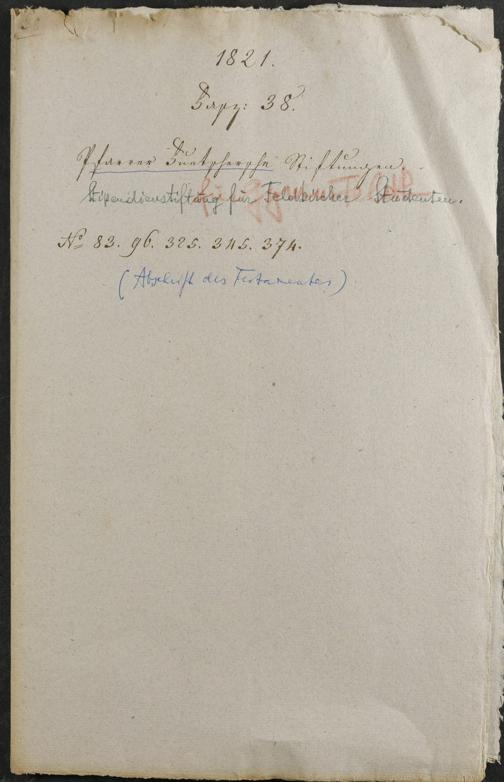 1821.
38.
Pfarrer Stiftungen.
Stipendienstiftung für Feldkircher Studenten.
No 83. 96. 325. 345. 374.
(Abschrift des Testamentes)